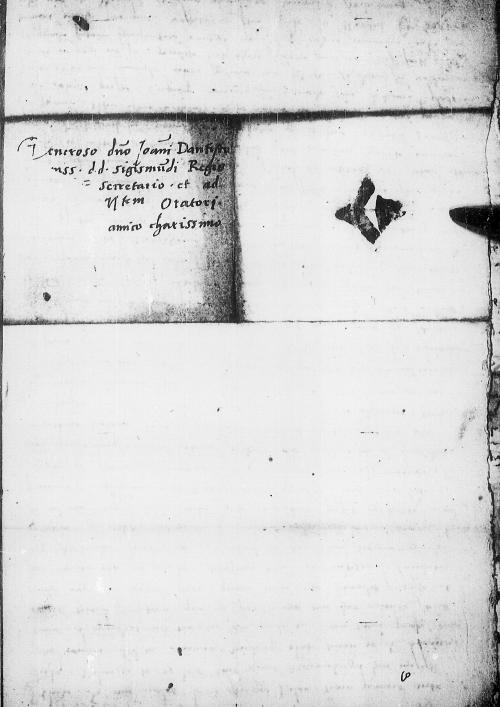 Generoso dno Joanni Dantisco
d.d. Sigismundi Regio
= Secretario · et ad
Oratori ·
amico charissimo
6